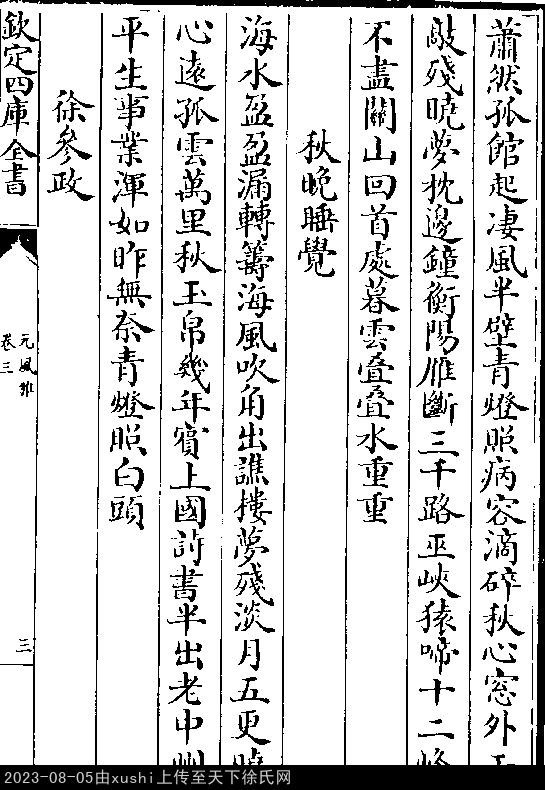 蕭然孤館起凄風半壁青燈照病容滴碎秋心窓外
敲殘曉夢枕邊鐘衡陽雁斷三千路巫峽猿啼十二
不盡關山回首處暮雲疊疊水重重
秋晚睡覺
海水盈盈漏轉籌海風吹角出譙樓夢殘淡月五更
心遠孤雲萬里秋玉帛幾年賓上國詩書半出老中
平生事業渾如昨無奈青燈照白頭
徐參政
欽定四庫全書
元風雅
卷三
三
2023-08-05由xushi上传至天下徐氏网